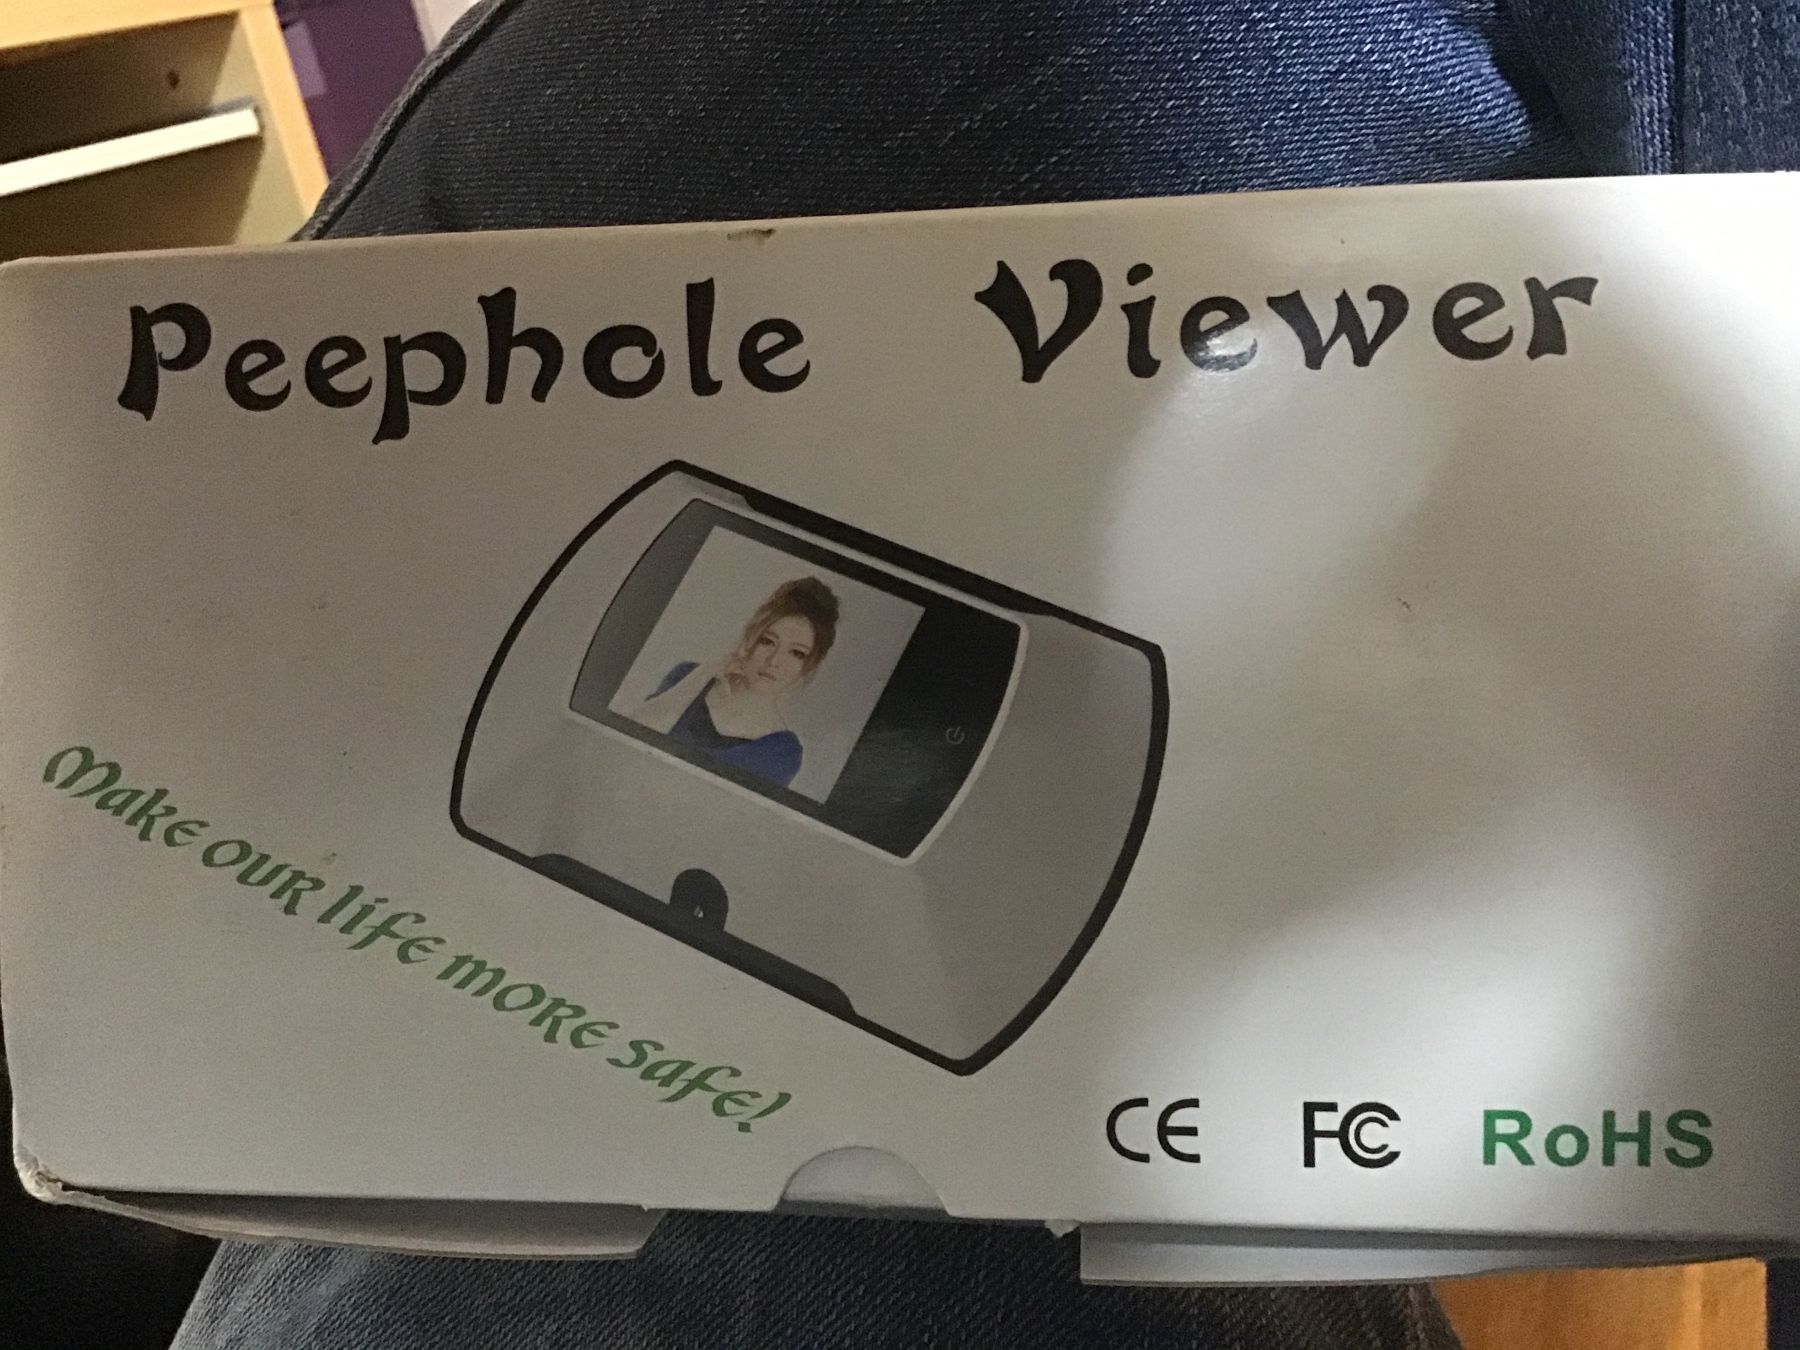 Peephole Viewer
Make our life more safe!
CE FC RoHS